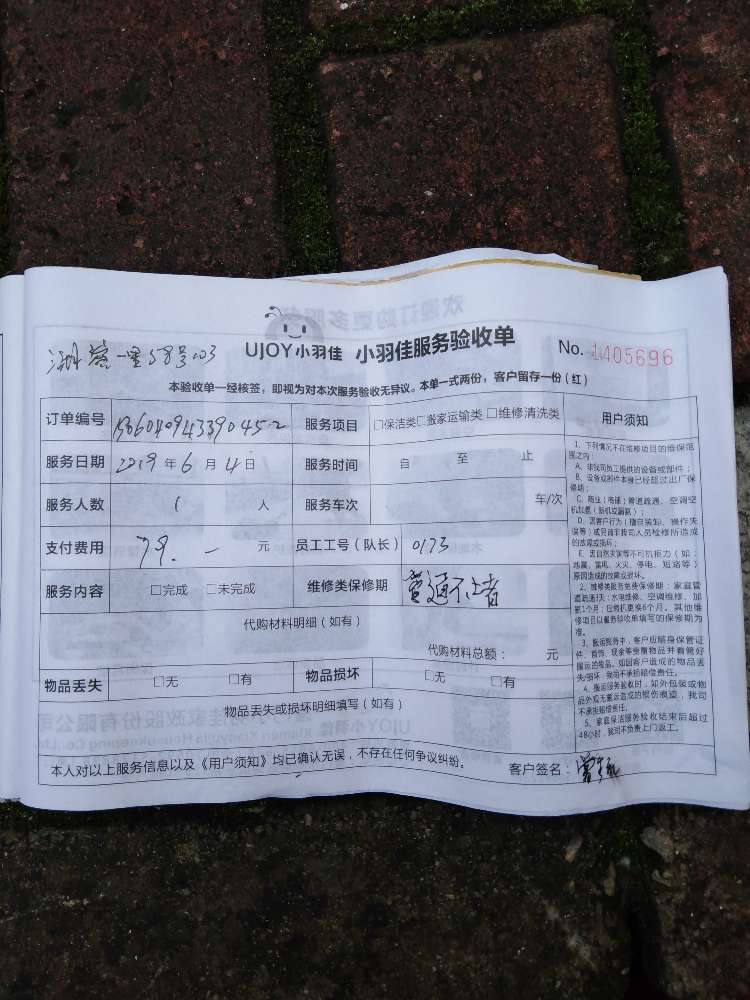 UJOY小羽佳 小羽佳服务验收单 No. 1405696
一里58号
本验收单一经核签，即视为对本次服务验收无异议。本单一式两份，客户留存一份(红)
订单编号 服务项目 □保洁类□搬家运输类□维修清洗类 用户须知
服务日期 2019年6月4日 服务时间 自 至 止
服务人数 1 人 服务车次 车/次
支付费用 79.- 元 员工工号(队长) 0173
服务内容 □完成 □未完成 维修类保修期
代购材料明细(如有)
代购材料总额: 元
物品丢失 □无 □有 物品损坏 □无 □有
物品丢失或损坏明细填写(如有)
1、下列情况不在维修项目的维保范
围之内:
A、非我司员工提供的设备或部件;
B、设备或部件本身已经超过出厂保
修期;
C、商业(场所)管道疏通、空调空
机加氨(新机或漏氨);
D、因客户行为(擅自装卸、操作失
误等)或另请非我司人员检修所造成
的故障或损坏;
E、因自然灾害等不可抗拒力(如:
地震、雷电、火灾、停电、短路等)
原因造成的故障或损坏。
2、维修类服务免费保修期:家庭管
道疏通3天;水电维修、空调维修、加
氨1个月;压缩机更换6个月。其他维
修项目以服务验收单填写的保修期为
准。
3、搬运服务中，客户应随身保管证
件、首饰、现金等贵重物品并看管好
搬运的物品。如因客户造成的物品丢
失/损坏，我司不承担赔偿责任。
4、搬运服务验收时，如外包装或物
品外观无搬运造成的损伤痕迹，我司
不承担赔偿责任。
5、家庭保洁服务验收结束后超过
48小时，我司不负责上门返工。
本人对以上服务信息以及《用户须知》均已确认无误，不存在任何争议纠纷。 客户签名: